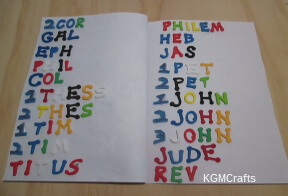 2COR
GAL
EPH
PHIL
COL
1THESS
2THES
1TIM
2TIM
TITUS
PHILEM
HEB
JAS
1PET
2PET
1JOHN
2JOHN
3JOHN
JUDE
REV
KGMCrafts